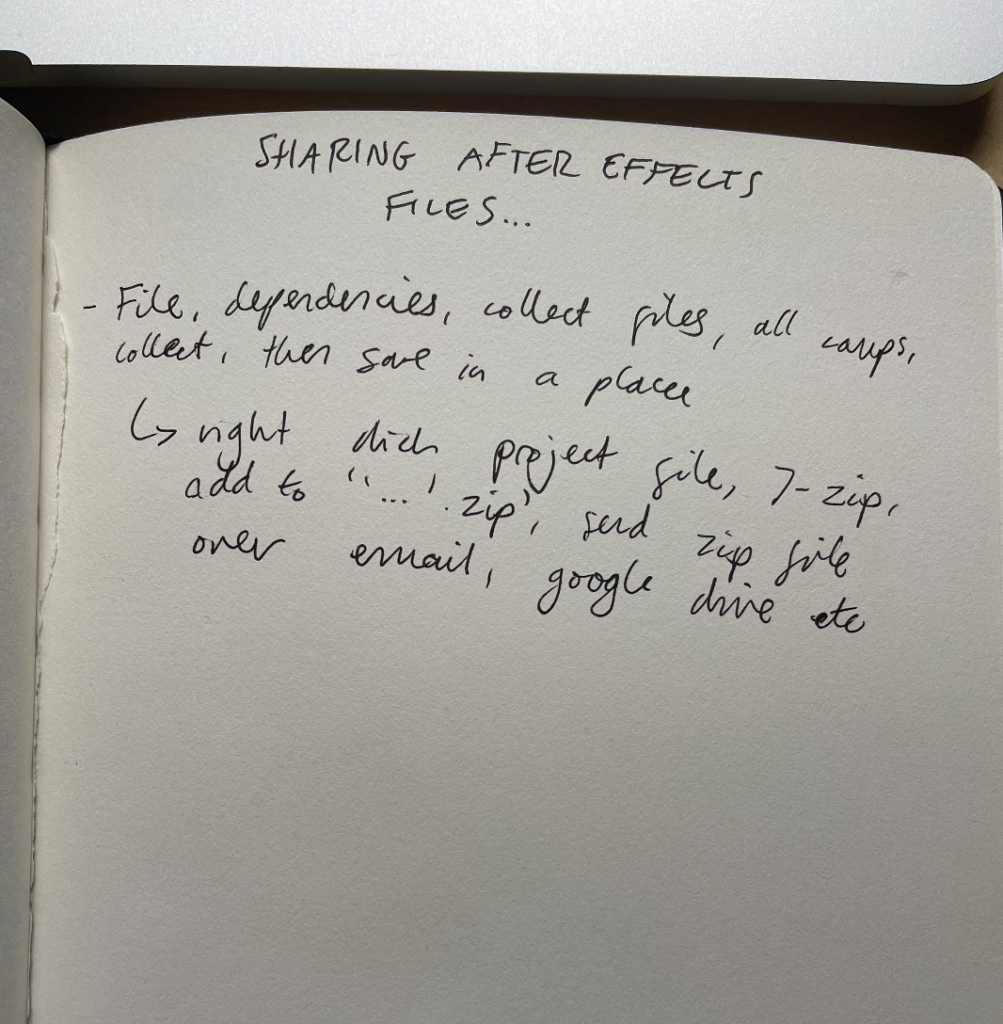 SHARING AFTER EFFECTS
FILES...
- File, dependencies, collect files, all comps,
collect, then save in a place
↳ right click project file, 7-zip,
add to "...'.zip', send zip file
over email, google drive etc